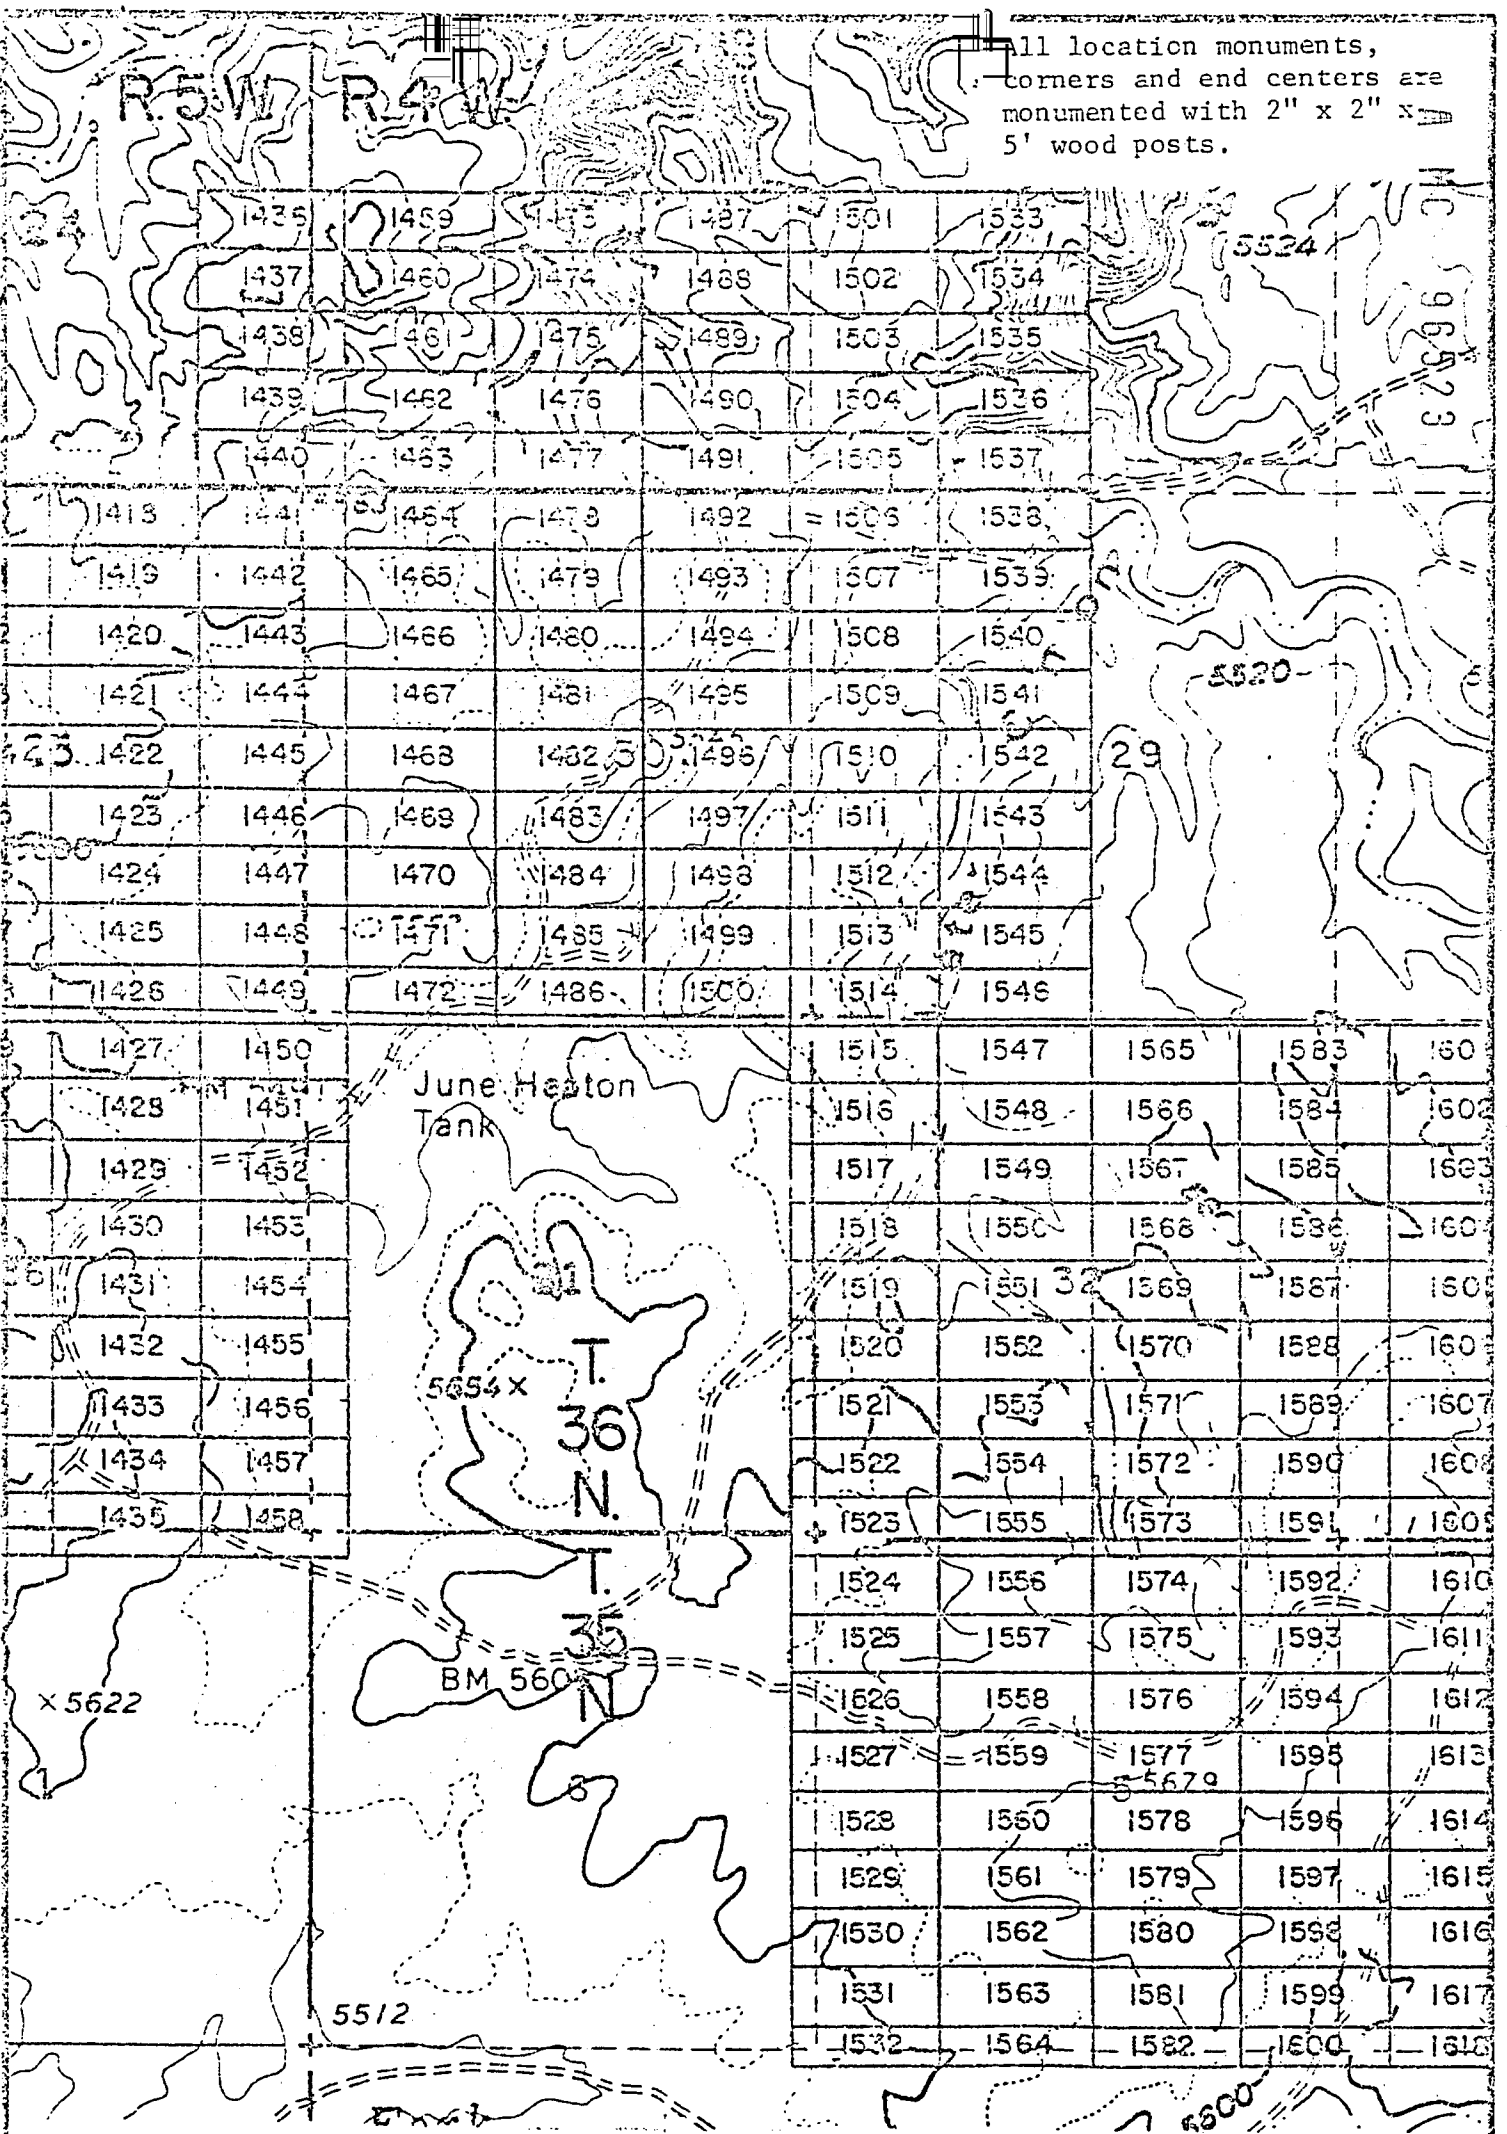 All location monuments,
corners and end centers are
monumented with 2" x 2" x
5' wood posts.
R.5W. R.4 W.
MC 96523
1436 1459 1473 1487 1501 1533
5524
1437 1460 1474 1488 1502 1534
1438 1461 1475 1489 1503 1535
1439 1462 1476 1490 1504 1536
1440 1463 1477 1491 1505 1537
1418 1441 1464 1478 1492 1506 1538
1419 1442 1465 1479 1493 1507 1539
1420 1443 1466 1480 1494 1508 1540
1421 1444 1467 1481 1495 1509 1541
5520
1422 1445 1468 1482 30 1496 1510 1542 29
1423 1446 1469 1483 1497 1511 1543
1424 1447 1470 1484 1498 1512 1544
1425 1448 1471 1485 1499 1513 1545
1426 1449 1472 1486 1500 1514 1546
1427 1450 1515 1547 1565 1583 160
June Heaton
Tank
1428 1451 1516 1548 1566 1584 1602
1429 1452 1517 1549 1567 1585 1603
1430 1453 1518 1550 1568 1586 160
1431 1454 31 1519 1551 32 1569 1587 160
1432 1455 1520 1552 1570 1588 160
T.
36
N.
5654
1433 1456 1521 1553 1571 1589 1607
1434 1457 1522 1554 1572 1590 1608
1435 1458 1523 1555 1573 1591 1609
T.
35
N
1524 1556 1574 1592 1610
1525 1557 1575 1593 1611
BM 560
5622
1526 1558 1576 1594 1612
1527 1559 1577 1595 1613
5 5679
1 6
1528 1560 1578 1596 1614
1529 1561 1579 1597 1615
1530 1562 1580 1598 1616
1531 1563 1581 1599 1617
5512
1532 1564 1582 1600 1618
5600